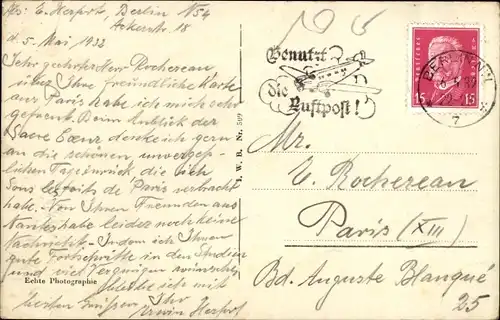 Abs: E. Herfort, Berlin N54
Ackerstr. 18
d. 5. Mai 1932
Sehr geehrter Herr Rochereau
über Ihre freundliche Karte
aus Paris habe ich mich sehr
gefreut. Beim Anblick der
Sacré Cœur denke ich gern
an die schönen unvergeß-
lichen Tage zurück die ich
sous les toits de Paris verbracht
habe. Von Ihren Freunden aus
Nantes habe leider noch keine
Nachricht. Indem ich Ihnen
gute Fortschritte in den Studien
und viel Vergnügen wünsche
ich mit
besten Grüßen Ihr
Erwin Herfort
Echte Photographie
I. W. B. Nr. 509
Benutzt
die
Luftpost!
15 15
BERLIN N
7
Mr.
E. Rochereau
Paris (XIII)
Bd. Auguste Blanqué
25